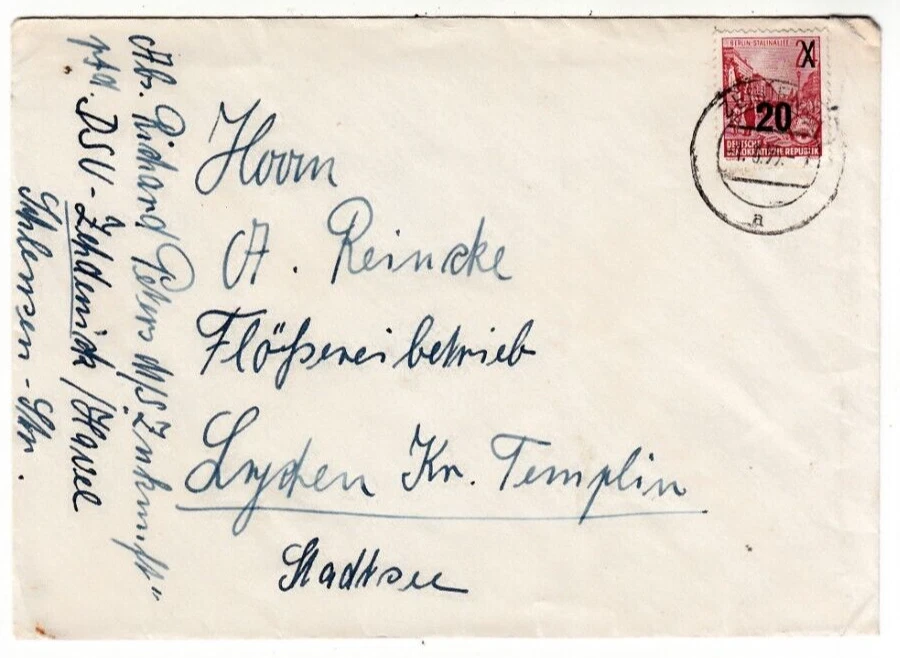 Herrn
A. Reincke
Flößereibetrieb
Lychen Kr. Templin
Stadtsee
Abs. Richard Peters M/S Zukunft"
DSU - Zehdenick / Havel
Schleusen - Str.
BERLIN STALINALLEE
24
20
DEUTSCHE
DEMOKRATISCHE REPUBLIK
a